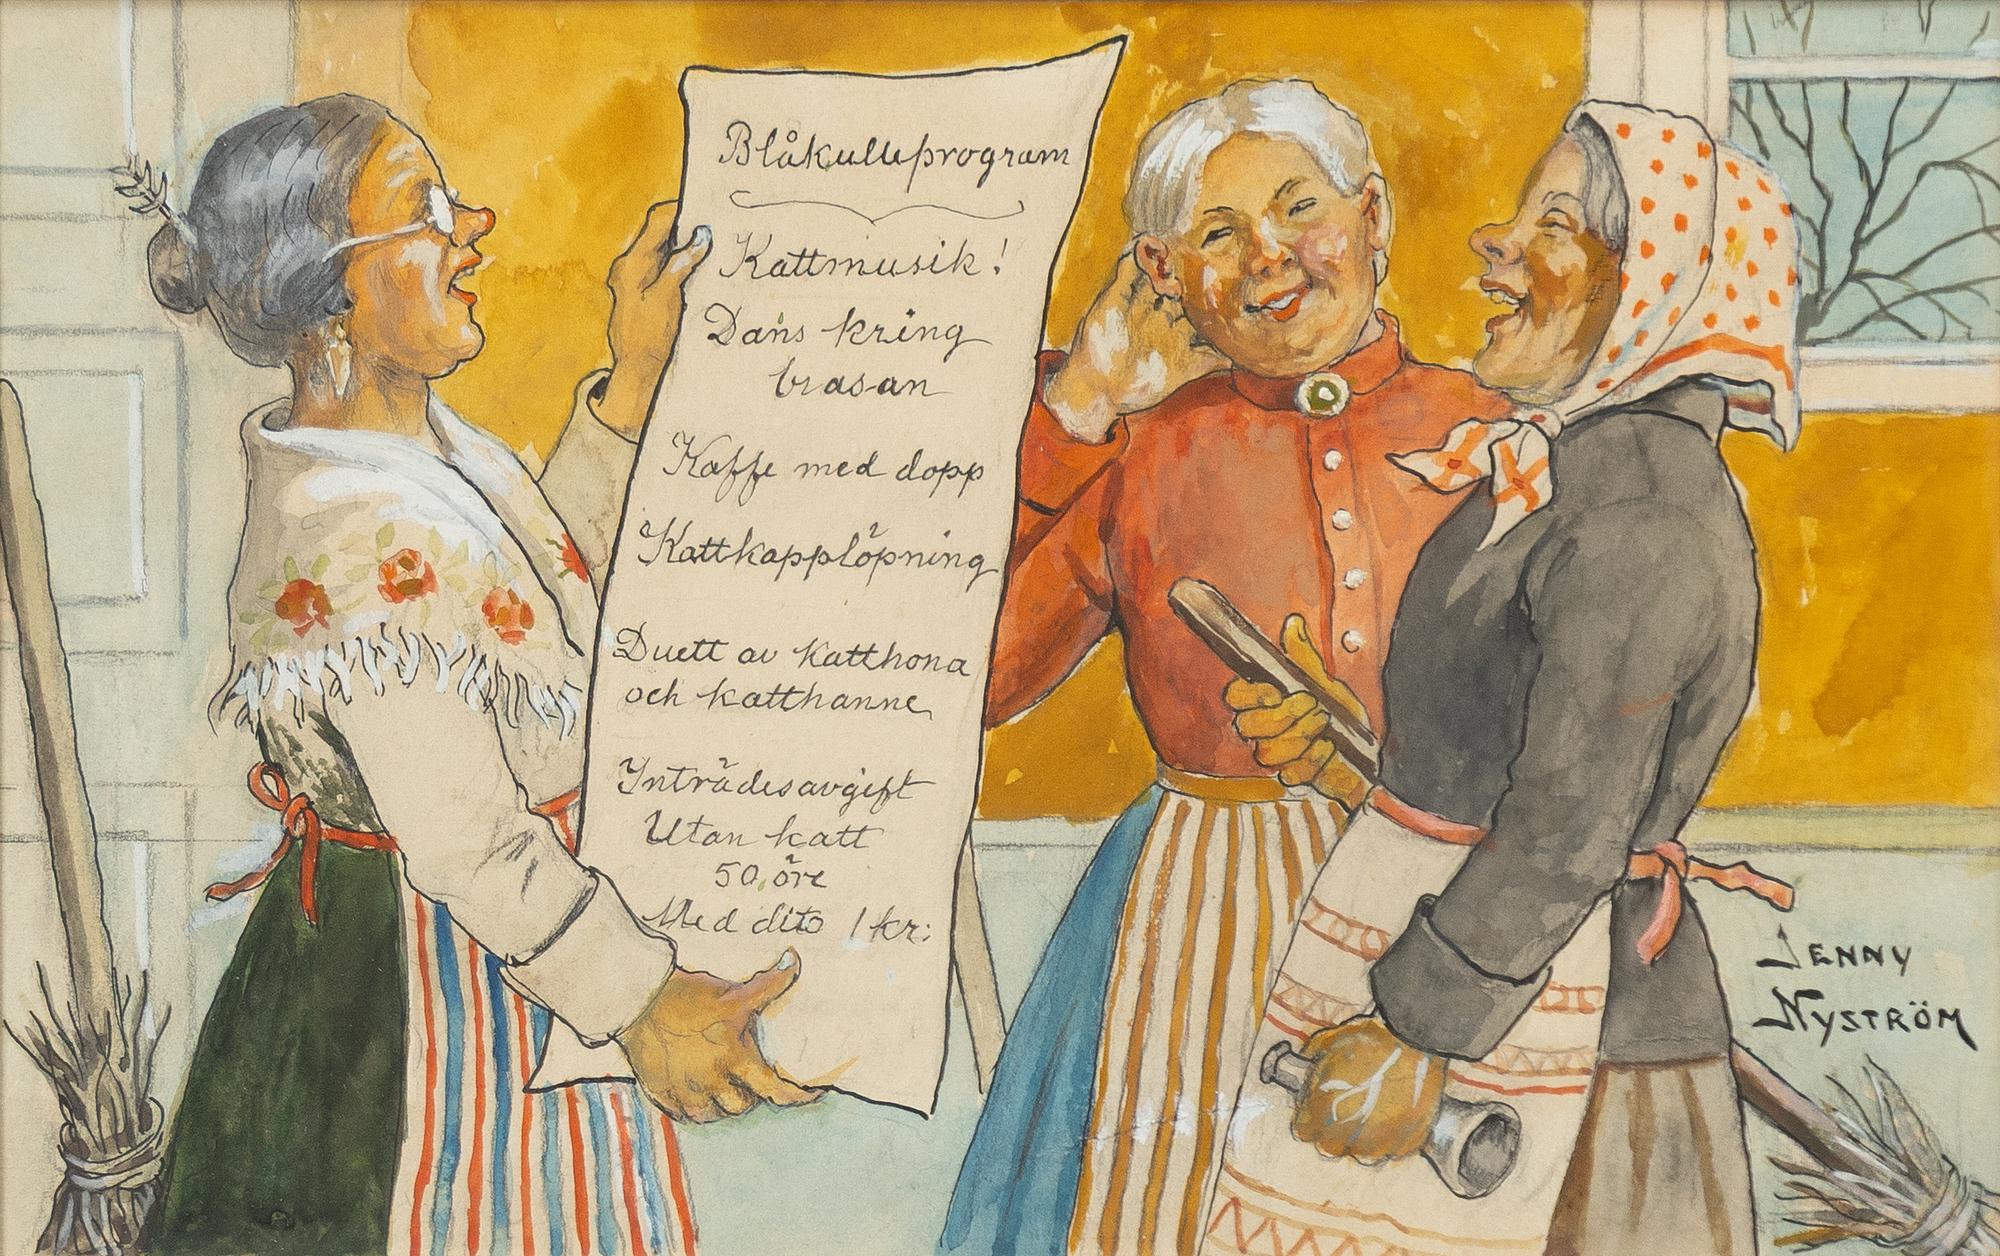 Blåkulleprogram
Kattmusik!
Dans kring
brasan
Kaffe med dopp
Kattkapplöpning
Duett av katthona
och katthanne
Inträdesavgift
Utan katt
50 öre
Med dito 1 kr:
JENNY
NYSTRÖM